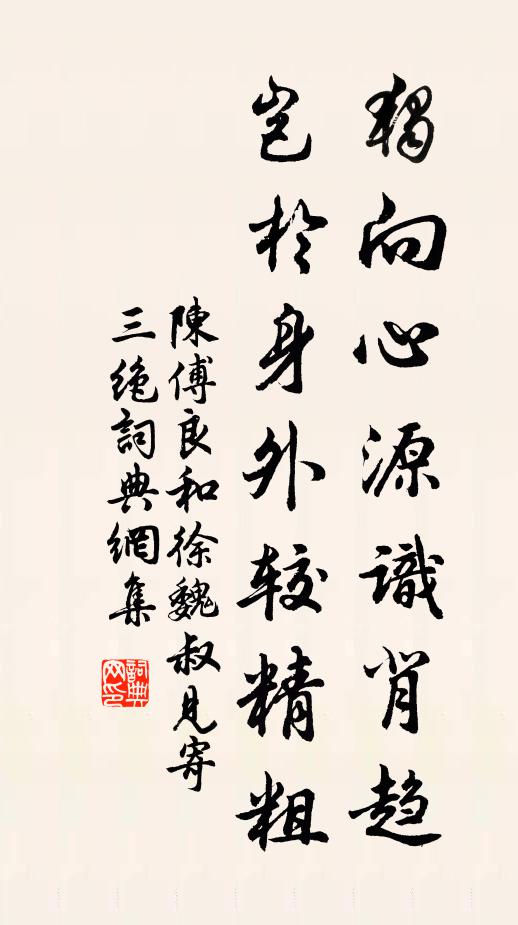 獨向心源識背趋
岂於身外较精粗
陳傅良和徐魏叔見寄
三绝詞典網集
詞典网印